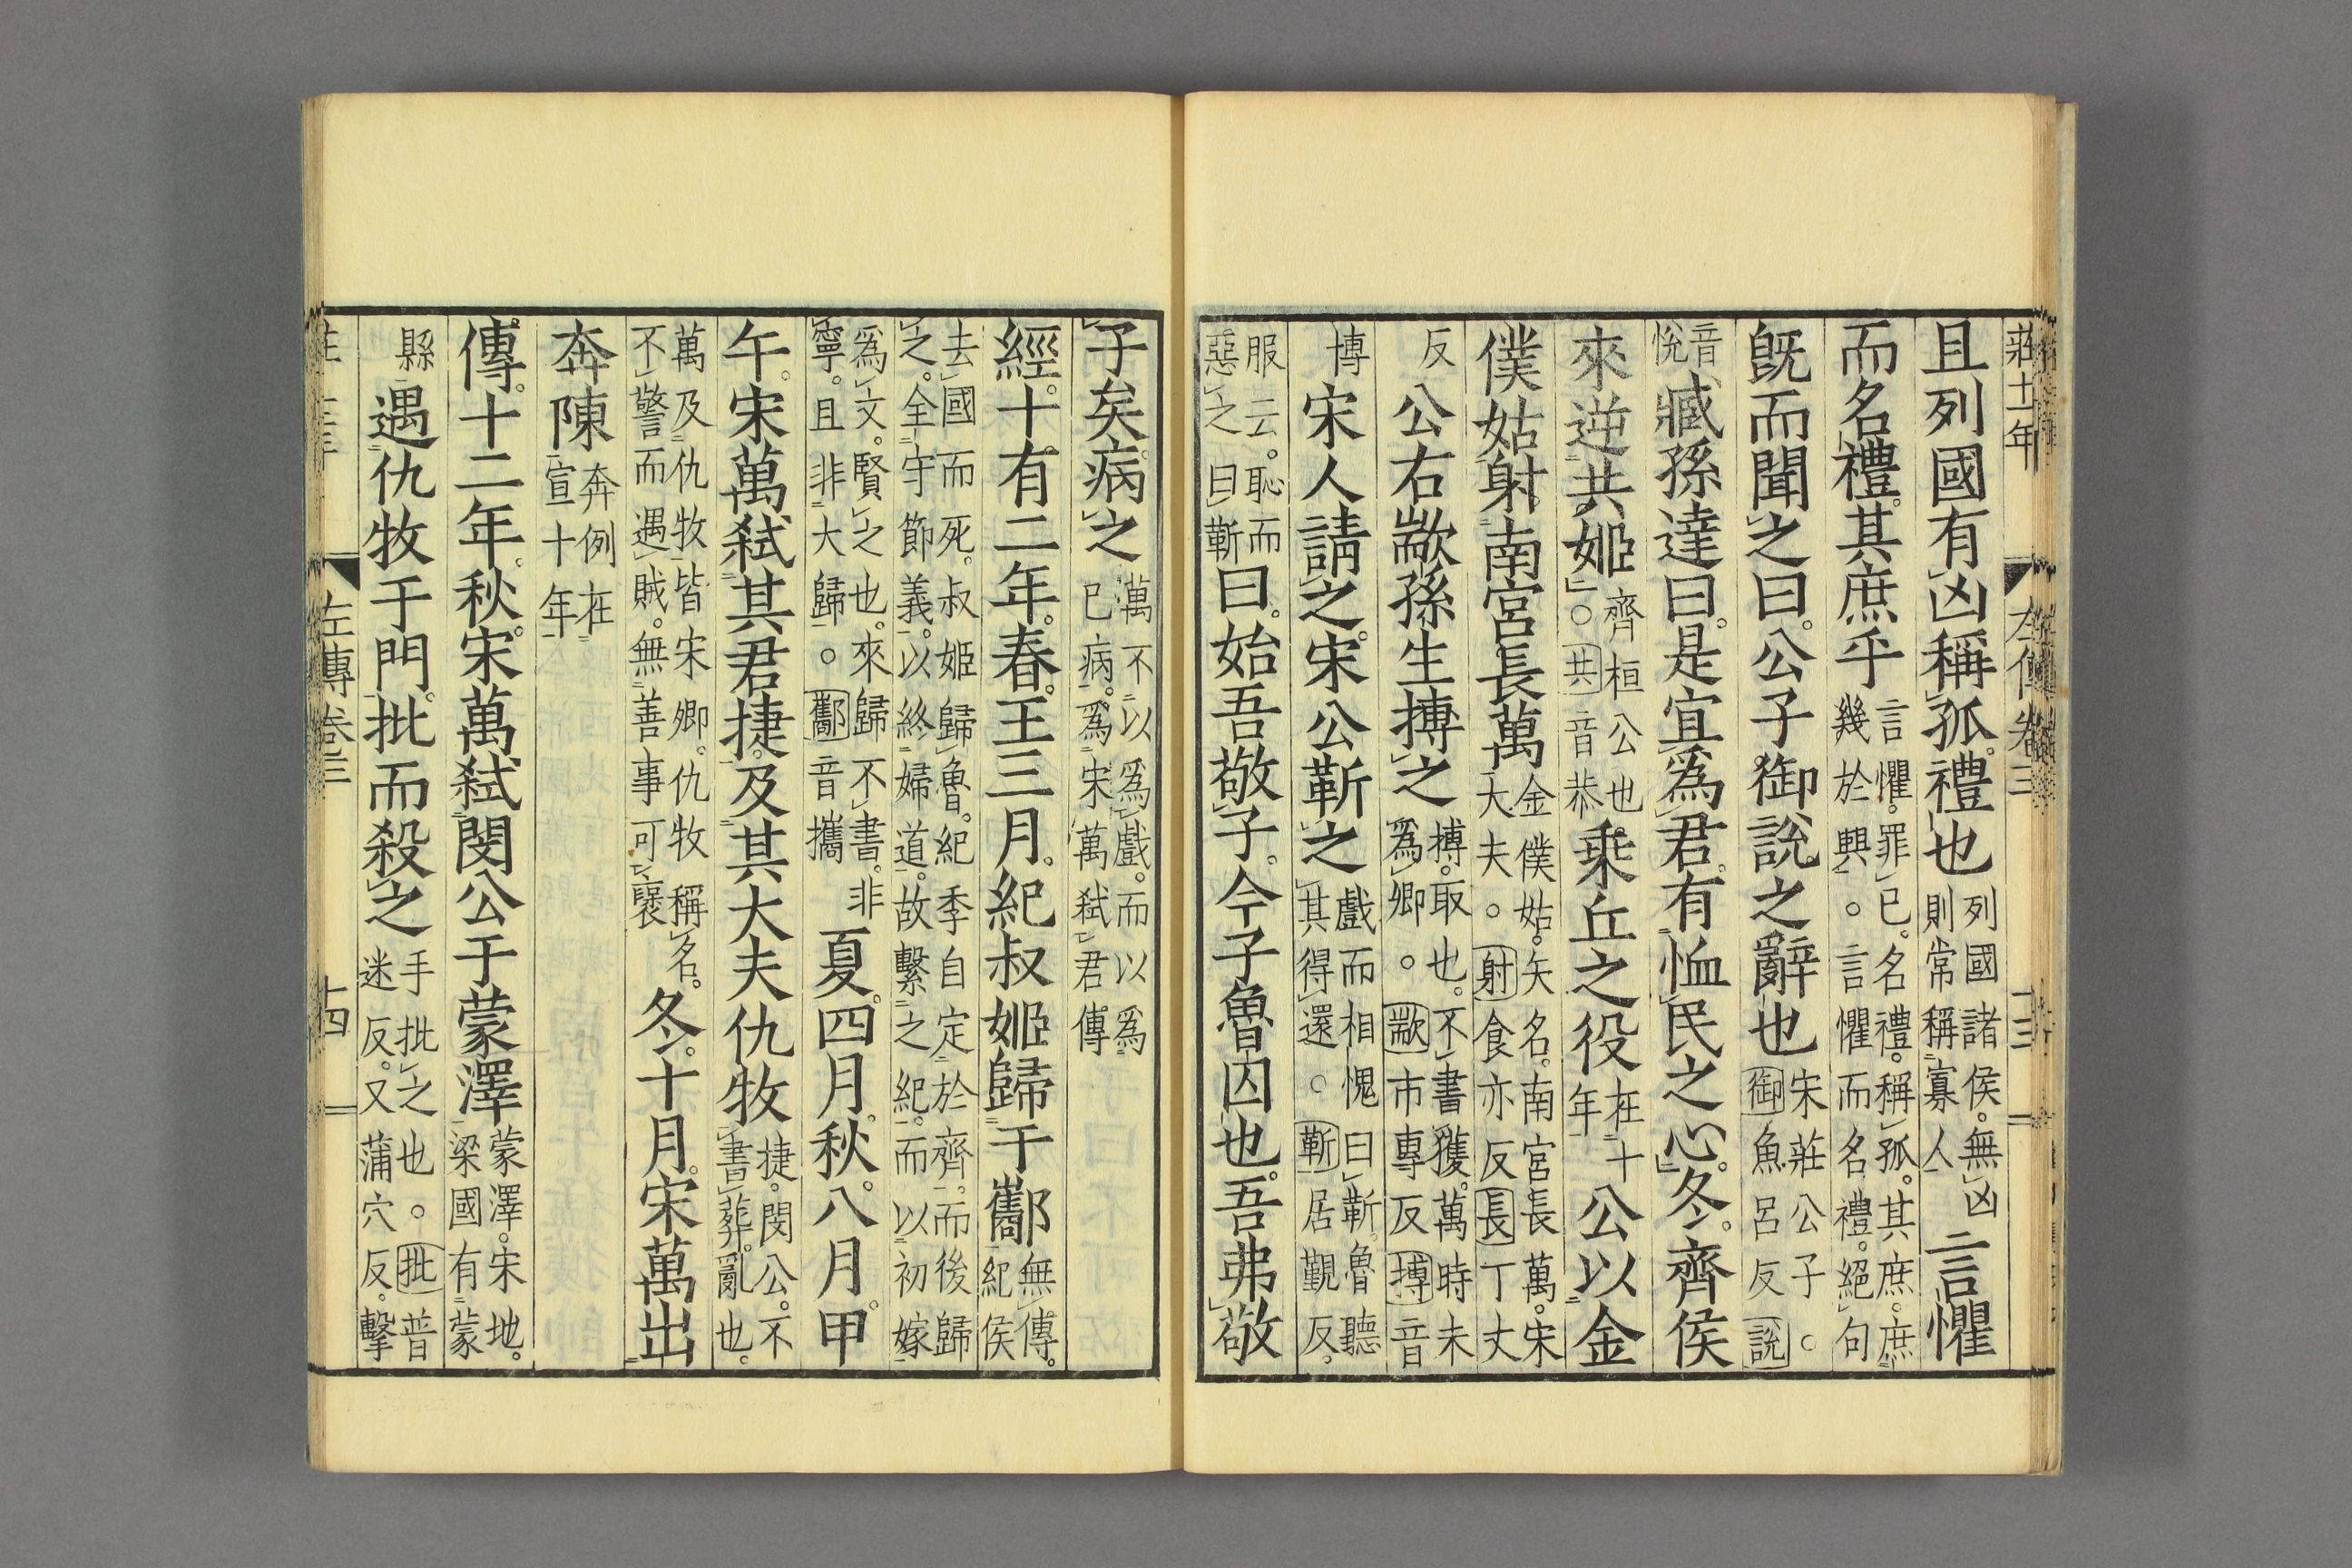 莊十一年
左傳卷三
十三
且列國有凶稱孤禮也列國諸侯。無凶則常稱寡人言懼
而名禮。其庶乎言懼。罪已。名禮。稱孤。其庶。庶幾於興。○言懼而名禮。絕句
旣而聞之曰。公子御說之辭也宋莊公子○御魚呂反說
音悅臧孫達曰。是宜爲君。有恤民之心。冬。齊侯
來逆共姬齊桓公也○共音恭乘丘之役在十年公以金
僕姑射。南宮長萬金僕姑。矢名。南宮長萬。宋大夫。○射食亦反長丁丈
反公右歂孫生搏之搏。取也。不書獲。萬時未爲卿。○歂市專反搏音
博宋人請之。宋公靳之戲而相愧曰靳。魯聽其得還○靳居覲反。
服云。恥而惡之曰靳曰。始吾敬子。今子魯囚也。吾弗敬
子矣。病之萬不以爲戲。而以爲已病。爲宋萬弑君傳
經。十有二年。春。王三月。紀叔姬歸于酅無傳。紀侯
去國而死。叔姬歸魯。紀季自定於齊。而後歸之。全守節義。以終婦道。故繫之紀。而以初嫁
爲文。賢之也。來歸不書。非寧。且非大歸。○酅音攜夏。四月。秋。八月。甲
午。宋萬弑其君捷。及其大夫仇牧捷。閔公。不書葬。亂也。
萬及仇牧皆宋卿。仇牧稱名。不警而遇賊。無善事可襃冬。十月。宋萬出
奔陳奔例在宣十年
傳。十二年。秋。宋萬弑閔公于蒙澤蒙澤。宋地。梁國有蒙
縣遇仇牧于門。批而殺之手批之也。○批普迷反。又蒲穴反。擊
左傳卷三
十四